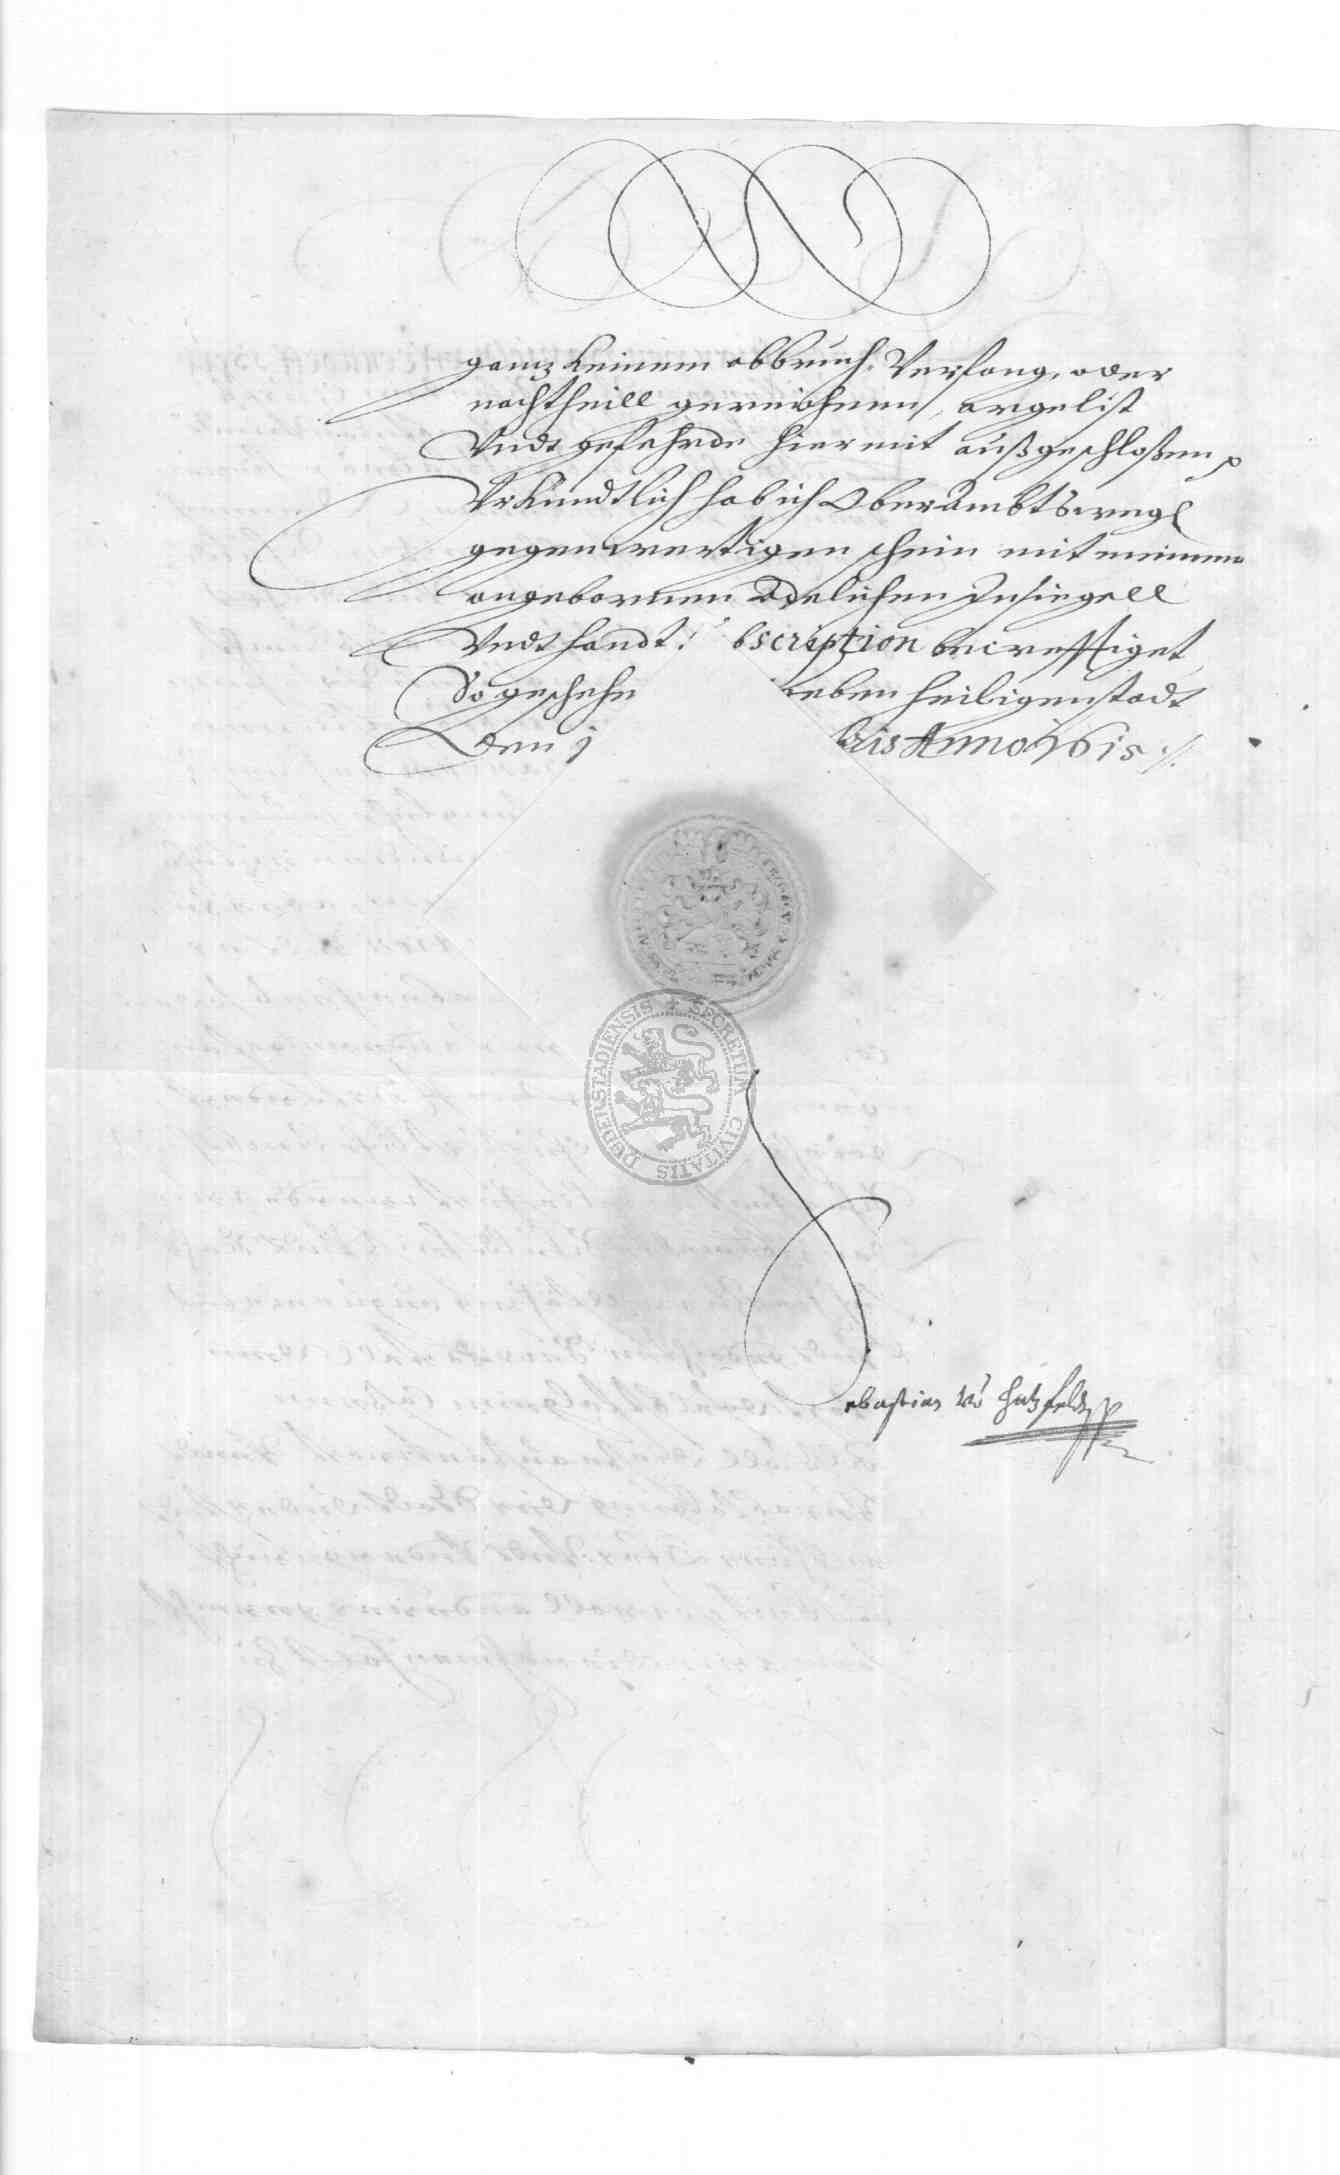 ganz keinem abbruch, Verfang, oder
nachtheill gereichenn, argelist
Vndt gefehrde hiermit außgeschloßenn
Vrkundtlich hab ich OberAmbtsverw
gegenwertigen schein mit meinem
angebornnen Adelichen Insiegell
Vndt handt bscription becrefftiget
So geschehe eben Heiligenstadt
den 1 bris Anno 1615
SECRETUM CIVITATIS DUDERSTADIENSIS
Sebastian Vo Hatzfeldt